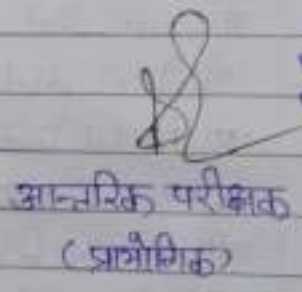 आन्तरिक परीक्षक
(प्रायोगिक)